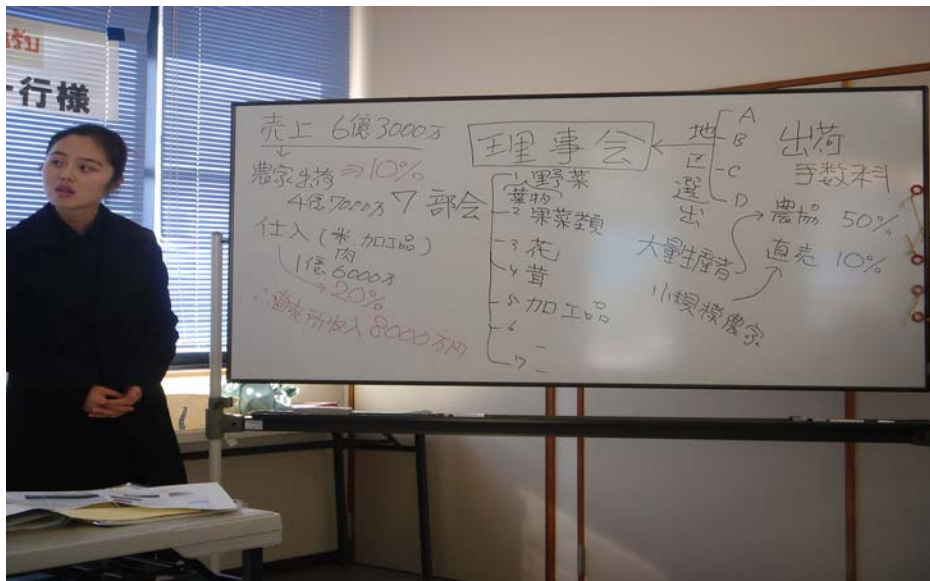 รับ
一行様
売上 6億3000万
農家出荷 ⇒10%
4億7000万
仕入(米,加工品)
肉
1億6000万
→20%
∴直売所収入 8000万円
理事会
7部会
1 野菜
葉物
2 果菜類
3 花
4 茸
5 加工品
6
7
地区選出
A
B
C
D
出荷
手数料
農協 50%
直売 10%
大量生産者
小規模農家